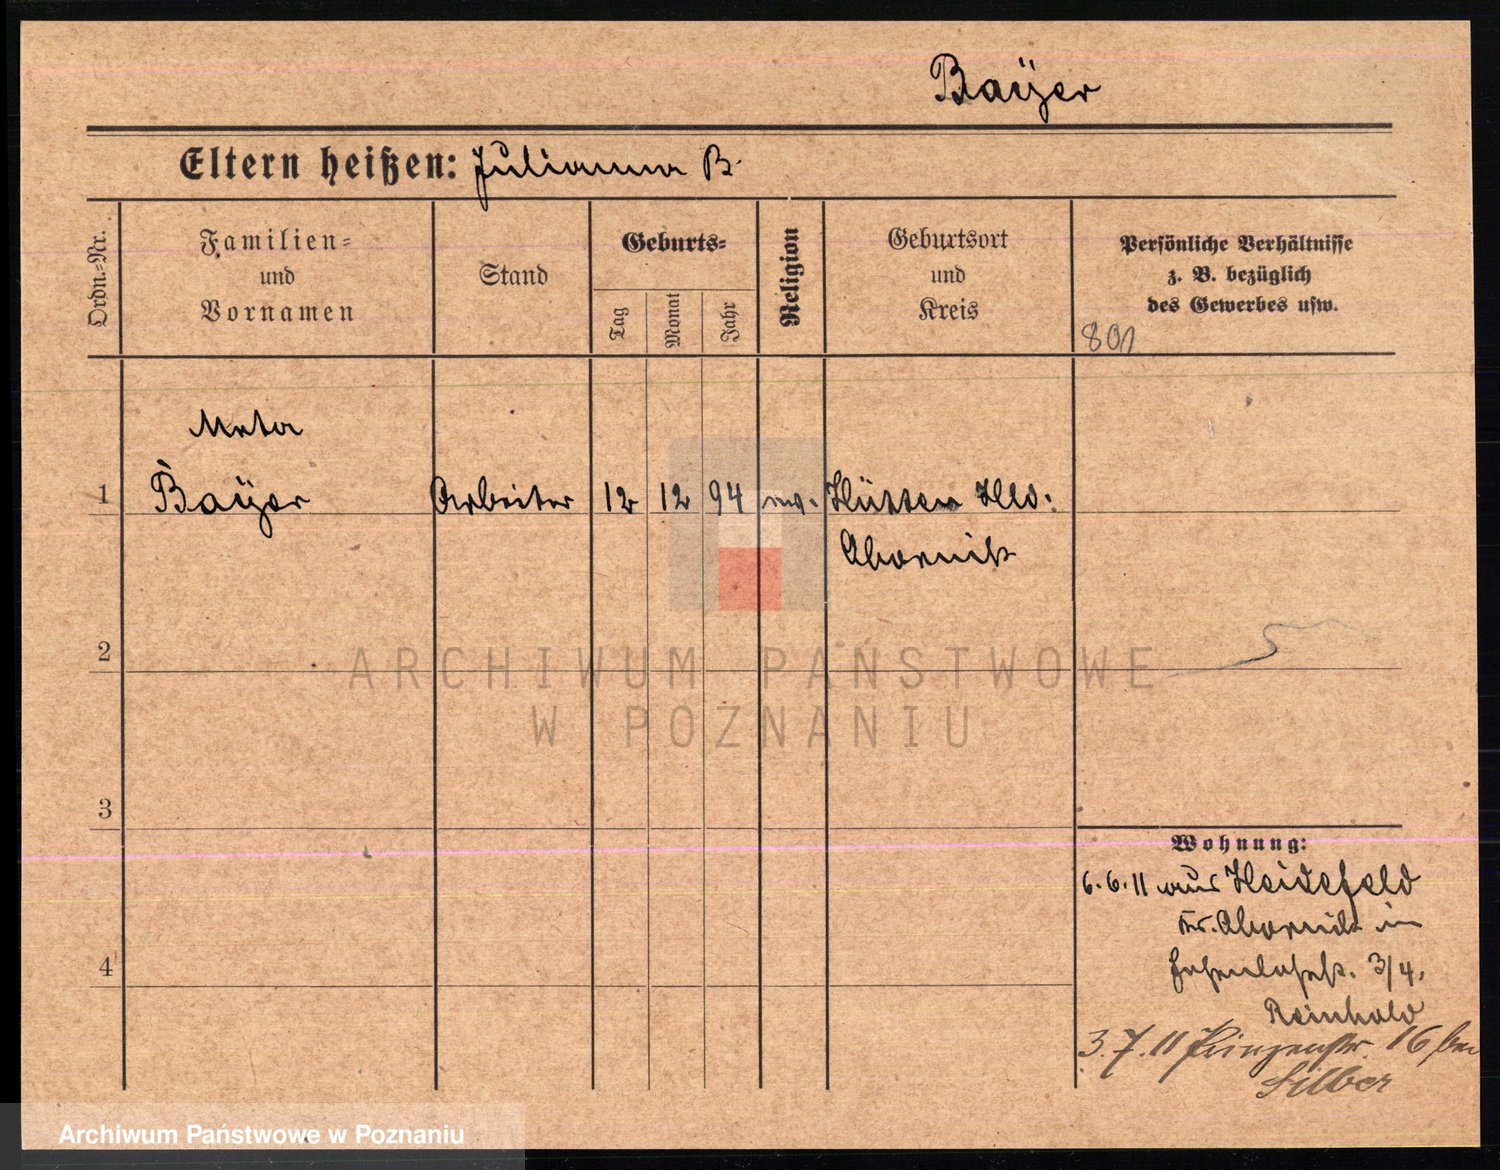 Baÿer
Eltern heißen: Julianna B.
Ordn.=Nr.
Familien=
und
Vornamen
Stand
Geburts=
Tag
Monat
Jahr
Religion
Geburtsort
und
Kreis
Persönliche Verhältnisse
z. B. bezüglich
des Gewerbes usw.
801
Meta
1 Baÿer Arbeiter 12 12 94 ev. Hütten Hld:
Obornik
2
ARCHIWUM PAŃSTWOWE
W POZNANIU
3
Wohnung:
6.6.11 aus Heidefeld
Kr. Obornik in
3/4.
4
Reinhold
3.7.11 Prinzenstr. 16 bei
Silber
Archiwum Państwowe w Poznaniu